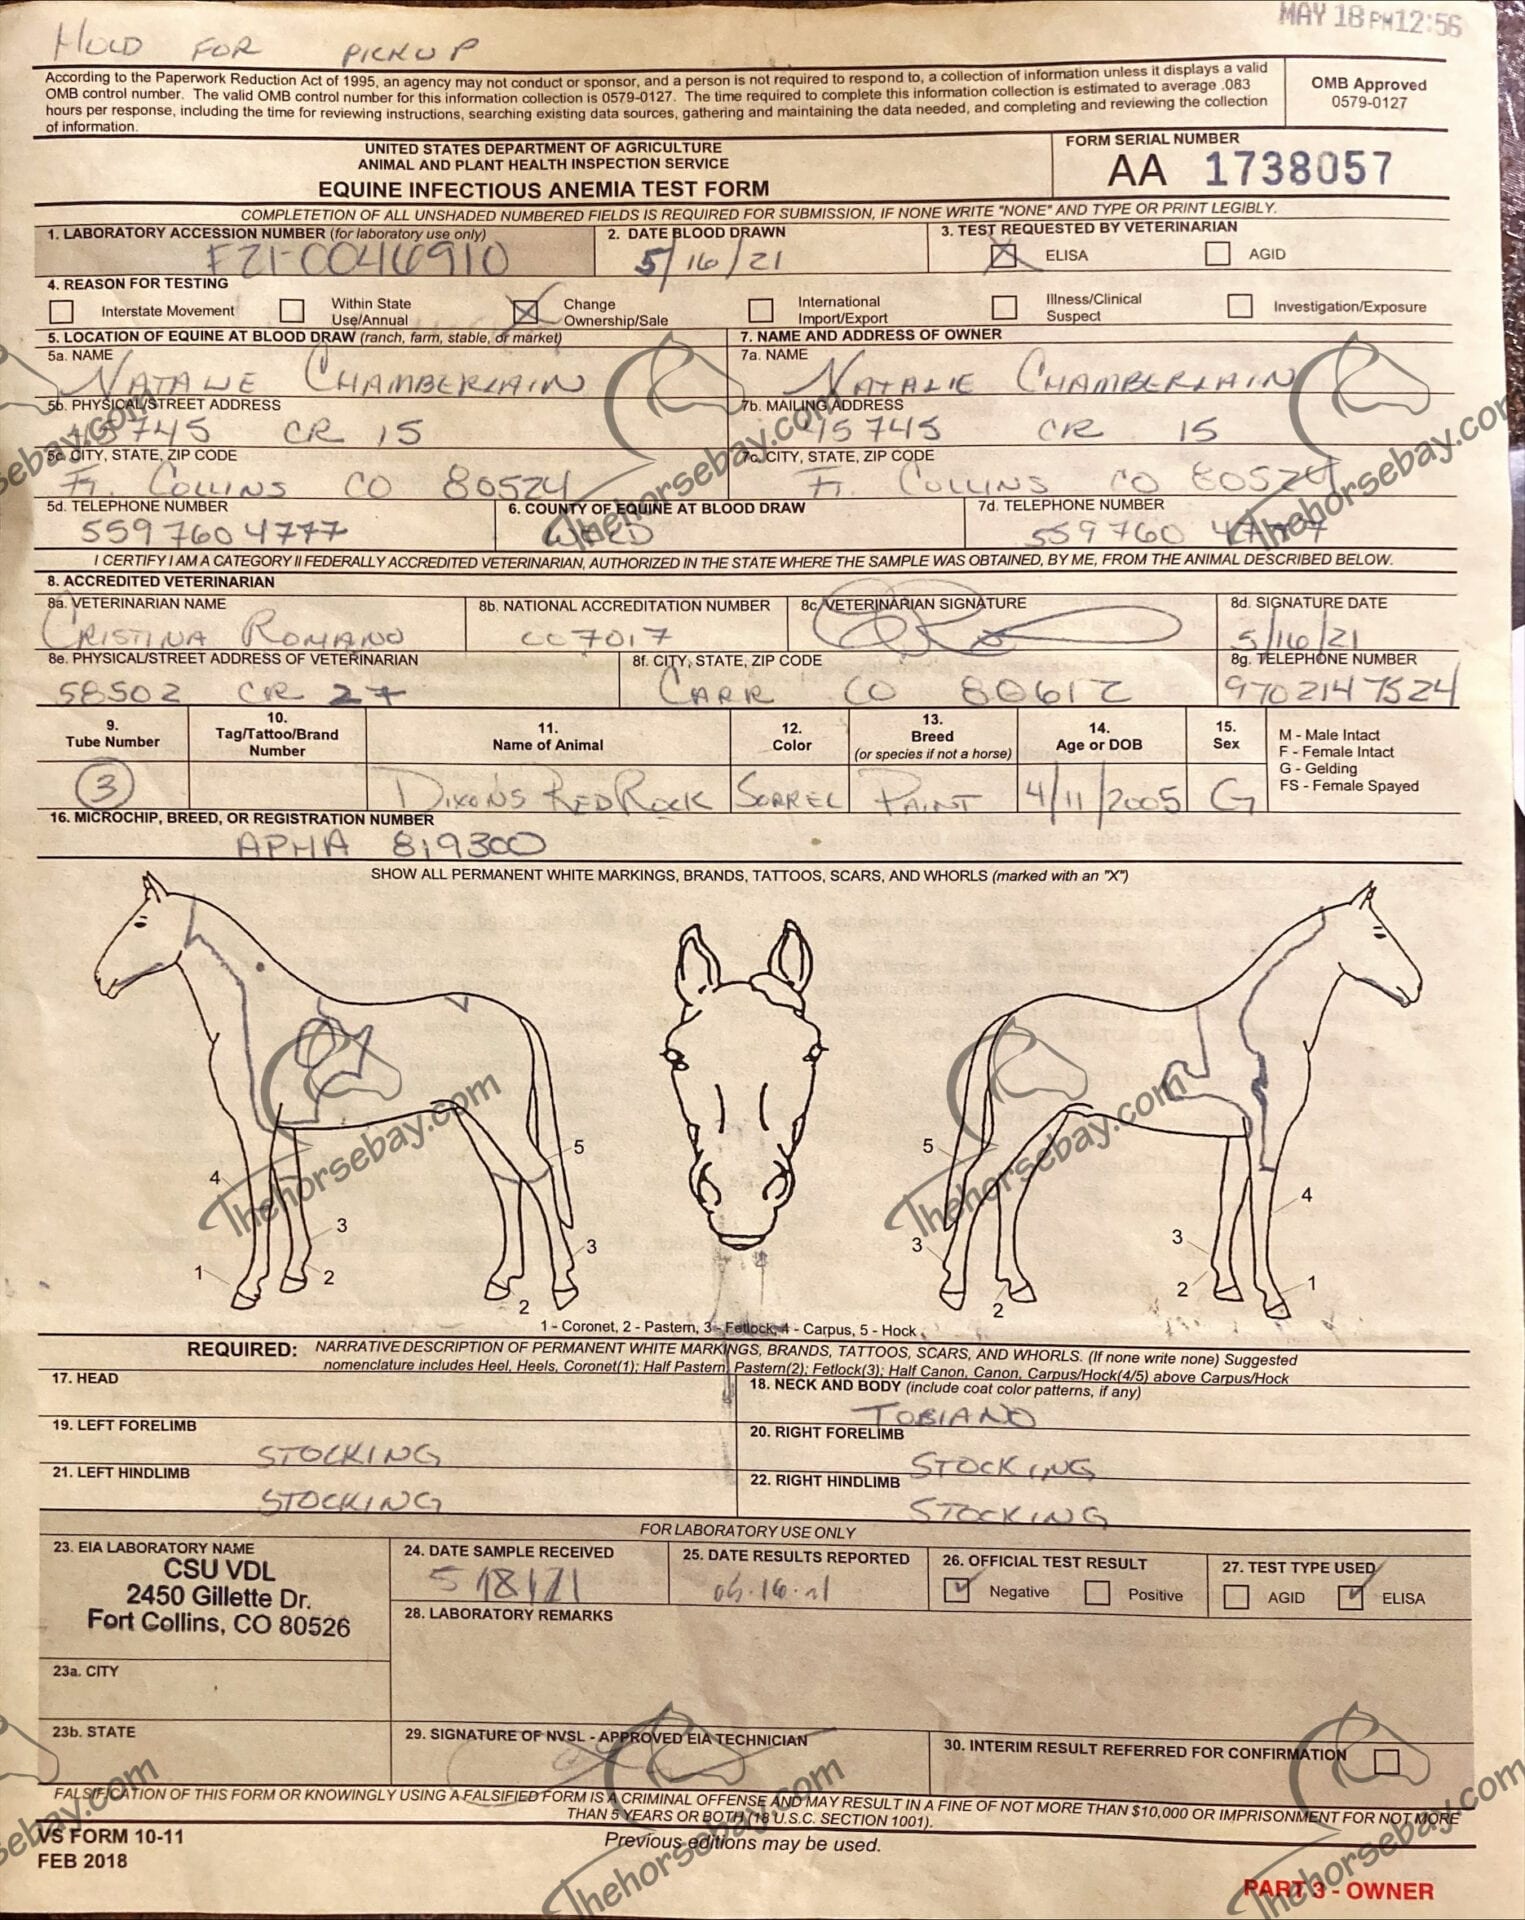 HOLD FOR PICKUP
MAY 18 PM 12:56
According to the Paperwork Reduction Act of 1995, an agency may not conduct or sponsor, and a person is not required to respond to, a collection of information unless it displays a valid
OMB control number. The valid OMB control number for this information collection is 0579-0127. The time required to complete this information collection is estimated to average .083
hours per response, including the time for reviewing instructions, searching existing data sources, gathering and maintaining the data needed, and completing and reviewing the collection
of information.
OMB Approved
0579-0127
UNITED STATES DEPARTMENT OF AGRICULTURE
ANIMAL AND PLANT HEALTH INSPECTION SERVICE
EQUINE INFECTIOUS ANEMIA TEST FORM
FORM SERIAL NUMBER
AA 1738057
COMPLETETION OF ALL UNSHADED NUMBERED FIELDS IS REQUIRED FOR SUBMISSION, IF NONE WRITE "NONE" AND TYPE OR PRINT LEGIBLY.
1. LABORATORY ACCESSION NUMBER (for laboratory use only)
F21-0046910
2. DATE BLOOD DRAWN
5/16/21
3. TEST REQUESTED BY VETERINARIAN
ELISA AGID
4. REASON FOR TESTING
Interstate Movement
Within State Use/Annual
Change Ownership/Sale
International Import/Export
Illness/Clinical Suspect
Investigation/Exposure
5. LOCATION OF EQUINE AT BLOOD DRAW (ranch, farm, stable, or market)
7. NAME AND ADDRESS OF OWNER
5a. NAME
NATALIE CHAMBERLAIN
7a. NAME
NATALIE CHAMBERLAIN
5b. PHYSICAL/STREET ADDRESS
45745 CR 15
7b. MAILING ADDRESS
45745 CR 15
5c. CITY, STATE, ZIP CODE
FT. COLLINS CO 80524
7c. CITY, STATE, ZIP CODE
FT. COLLINS CO 80524
5d. TELEPHONE NUMBER
559 760 4777
6. COUNTY OF EQUINE AT BLOOD DRAW
WELD
7d. TELEPHONE NUMBER
559 760 4777
I CERTIFY I AM A CATEGORY II FEDERALLY ACCREDITED VETERINARIAN, AUTHORIZED IN THE STATE WHERE THE SAMPLE WAS OBTAINED, BY ME, FROM THE ANIMAL DESCRIBED BELOW.
8. ACCREDITED VETERINARIAN
8a. VETERINARIAN NAME
CRISTINA ROMANO
8b. NATIONAL ACCREDITATION NUMBER
007017
8c. VETERINARIAN SIGNATURE
8d. SIGNATURE DATE
5/16/21
8e. PHYSICAL/STREET ADDRESS OF VETERINARIAN
58502 CR 27
8f. CITY, STATE, ZIP CODE
CARR CO 80612
8g. TELEPHONE NUMBER
970 214 7524
9. Tube Number
10. Tag/Tattoo/Brand Number
11. Name of Animal
12. Color
13. Breed (or species if not a horse)
14. Age or DOB
15. Sex
M - Male Intact
F - Female Intact
G - Gelding
FS - Female Spayed
3 DIXONS RED ROCK SORREL PAINT 4/11/2005 G
16. MICROCHIP, BREED, OR REGISTRATION NUMBER
APHA 819300
SHOW ALL PERMANENT WHITE MARKINGS, BRANDS, TATTOOS, SCARS, AND WHORLS (marked with an "X")
5 5
4 4
3 3 3 3
1 2 2 2 2 1
1 - Coronet, 2 - Pastern, 3 - Fetlock, 4 - Carpus, 5 - Hock
REQUIRED: NARRATIVE DESCRIPTION OF PERMANENT WHITE MARKINGS, BRANDS, TATTOOS, SCARS, AND WHORLS. (If none write none) Suggested
nomenclature includes Heel, Heels, Coronet(1); Half Pastern, Pastern(2); Fetlock(3); Half Canon, Canon, Carpus/Hock(4/5) above Carpus/Hock
17. HEAD
18. NECK AND BODY (include coat color patterns, if any)
TOBIANO
19. LEFT FORELIMB
STOCKING
20. RIGHT FORELIMB
STOCKING
21. LEFT HINDLIMB
STOCKING
22. RIGHT HINDLIMB
STOCKING
FOR LABORATORY USE ONLY
23. EIA LABORATORY NAME
CSU VDL
2450 Gillette Dr.
Fort Collins, CO 80526
24. DATE SAMPLE RECEIVED
25. DATE RESULTS REPORTED
26. OFFICIAL TEST RESULT
Negative Positive
27. TEST TYPE USED
AGID ELISA
28. LABORATORY REMARKS
23a. CITY
23b. STATE
29. SIGNATURE OF NVSL - APPROVED EIA TECHNICIAN
30. INTERIM RESULT REFERRED FOR CONFIRMATION
FALSIFICATION OF THIS FORM OR KNOWINGLY USING A FALSIFIED FORM IS A CRIMINAL OFFENSE AND MAY RESULT IN A FINE OF NOT MORE THAN $10,000 OR IMPRISONMENT FOR NOT MORE
THAN 5 YEARS OR BOTH (18 U.S.C. SECTION 1001).
VS FORM 10-11
FEB 2018
Previous editions may be used.
PART 3 - OWNER
Thehorsebay.com